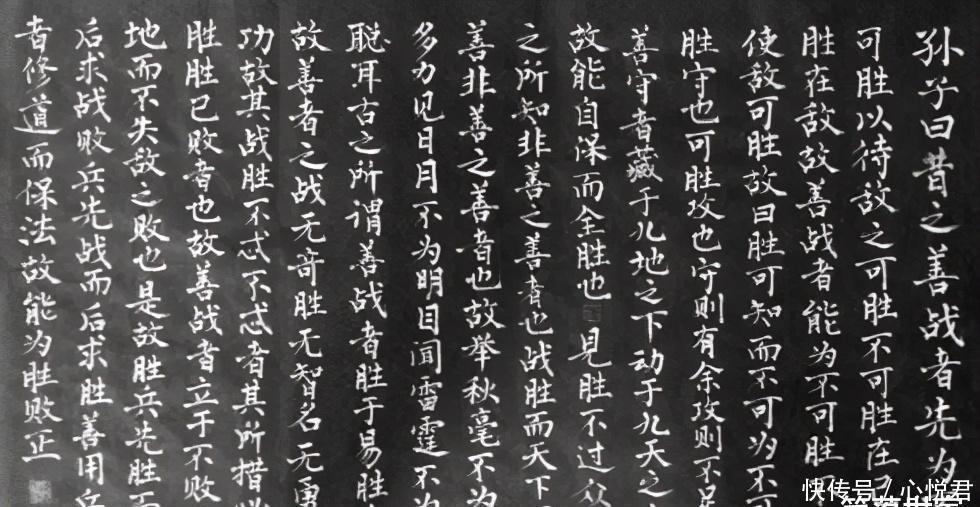 孙子曰昔之善战者先为
可胜以待敌之可胜不可胜在
胜在敌故善战者能为不可胜
使敌可胜故曰胜可知而不可为不可
胜守也可胜攻也守则有余攻则不足
善守者藏于九地之下动于九天之
故能自保而全胜也见胜不过众
之所知非善之善者也战胜而天下
善非善之善者也故举秋毫不为
多力见日月不为明目闻雷霆不为
聪耳古之所谓善战者胜于易胜
故善者之战无奇胜无智名无勇
功故其战胜不忒不忒者其所措
胜胜已败者也故善战者立于不败
地而不失敌之败也是故胜兵先胜而
后求战败兵先战而后求胜善用兵
者修道而保法故能为胜败正
快传号/心悦君